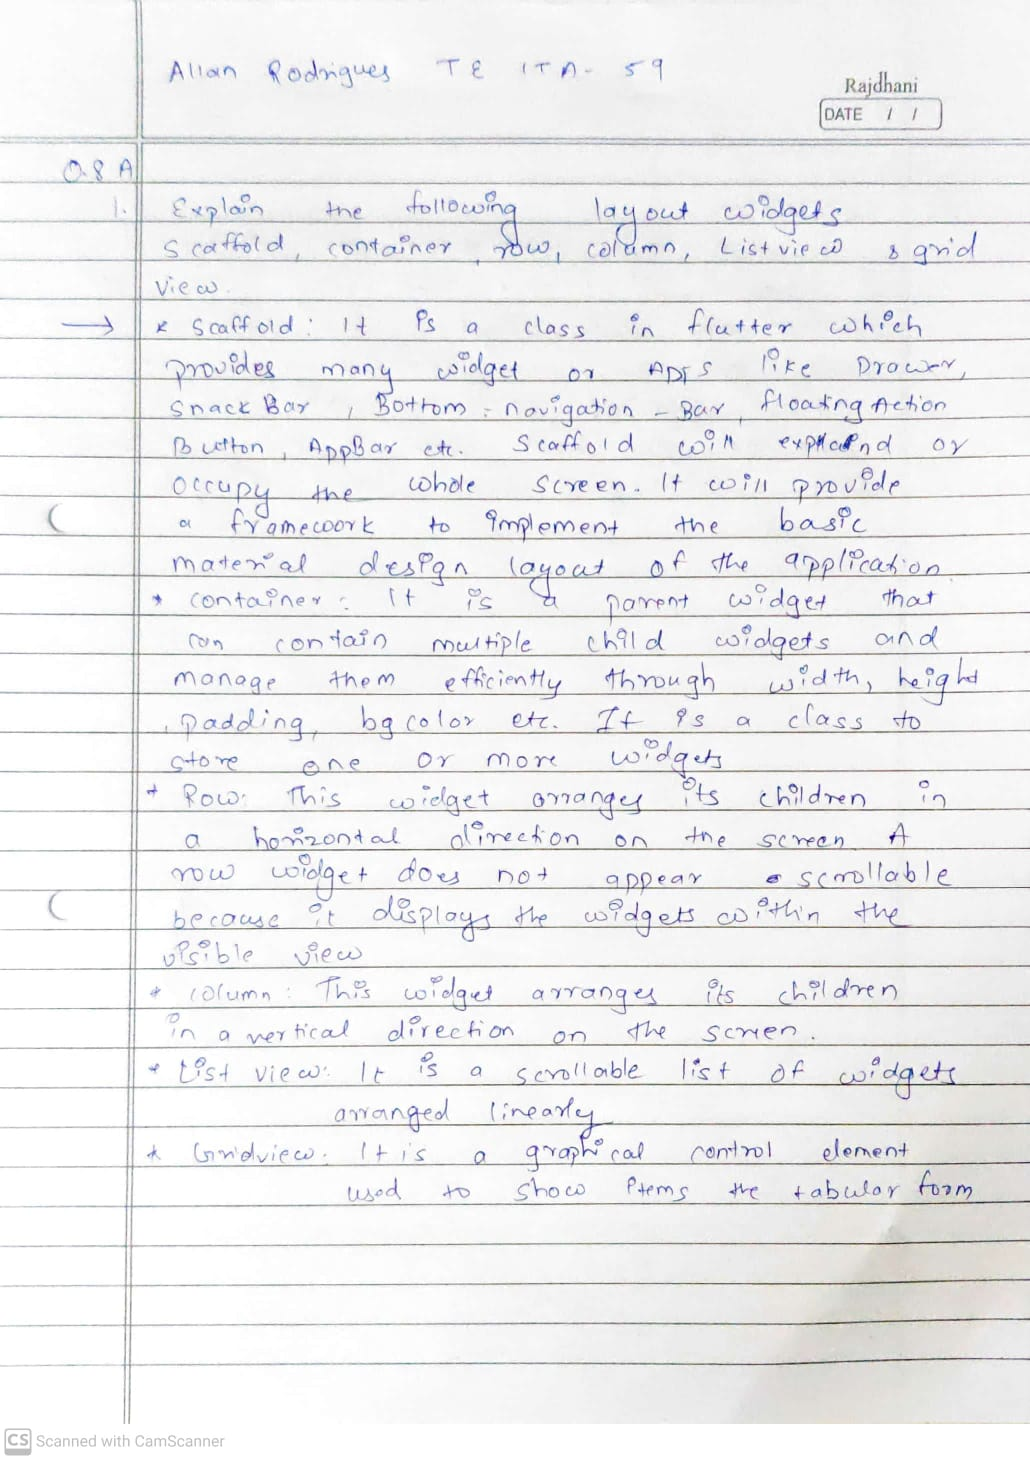 Allan Rodrigues TE ITA- 59
Rajdhani
DATE / /
Q.8 A
1. Explain the following layout widgets
Scaffold, container, row, column, Listview & grid
view.
→ * Scaffold: It is a class in flutter which
provides many widget or APIs like Drawer,
Snack Bar, Bottom-navigation-Bar, floating Action
Button, AppBar etc. Scaffold will expand or
occupy the whole screen. It will provide
a framework to implement the basic
material design layout of the application
* container: It is a parent widget that
can contain multiple child widgets and
manage them efficiently through width, height
, padding, bg color etc. It is a class to
store one or more widgets
* Row: This widget arranges its children in
a horizontal direction on the screen. A
row widget does not appear scrollable
because it displays the widgets within the
visible view
* column: This widget arranges its children
in a vertical direction on the screen.
* List view: It is a scrollable list of widgets
arranged linearly
* Gridview: It is a graphical control element
used to show items the tabular form
CS Scanned with CamScanner